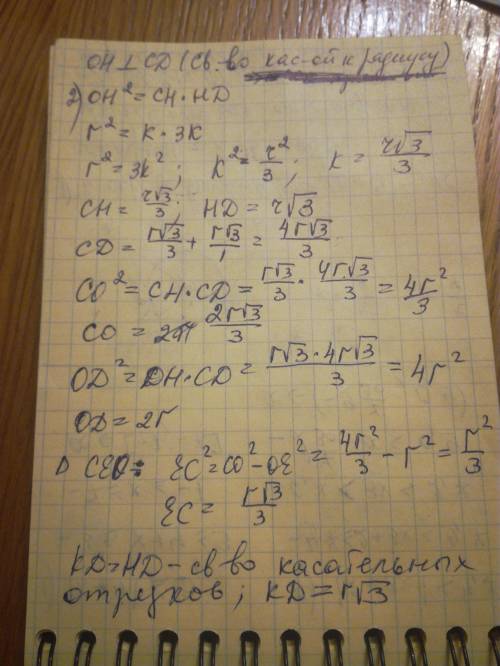 OH⊥CD (св. во кас-ой к радиусу)
2) OH² = CH·HD
r² = k·3k
r² = 3k²; k² = r²/3; k = r√3/3
CH = r√3/3; HD = r√3
CD = r√3/3 + r√3/1 = 4r√3/3
CO² = CH·CD = r√3/3 · 4r√3/3 = 4r²/3
CO = 2r√3/3
OD² = DH·CD = r√3·4r√3/3 = 4r²
OD = 2r
Δ CEO: EC² = CO² - OE² = 4r²/3 - r² = r²/3
EC = r√3/3
KD = HD - св во касательных
отрезков; KD = r√3